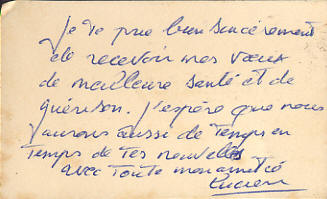 Je te prie bien sincèrement
de recevoir mes vœux
de meilleure santé et de
guérison. J'espère que nous
aurons aussi de temps en
temps de tes nouvelles
avec toute mon amitié
Lucien